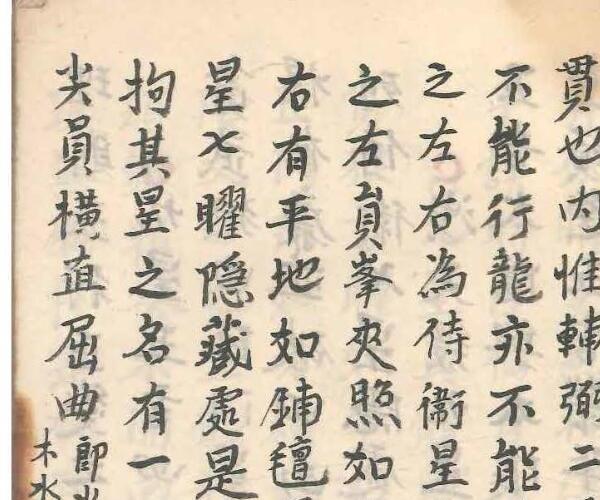 貫也内惟輔弼二
不能行龍亦不能
之左右為待衛星
之左員峯夾照如
右有平地如鋪氊
星七曜隱藏處是
拘其星之名有一
尖員橫直屈曲即
木水